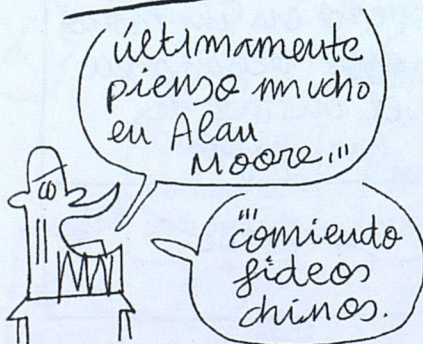 últimamente
pienso mucho
en Alan
Moore...
...comiendo
fideos
chinos.